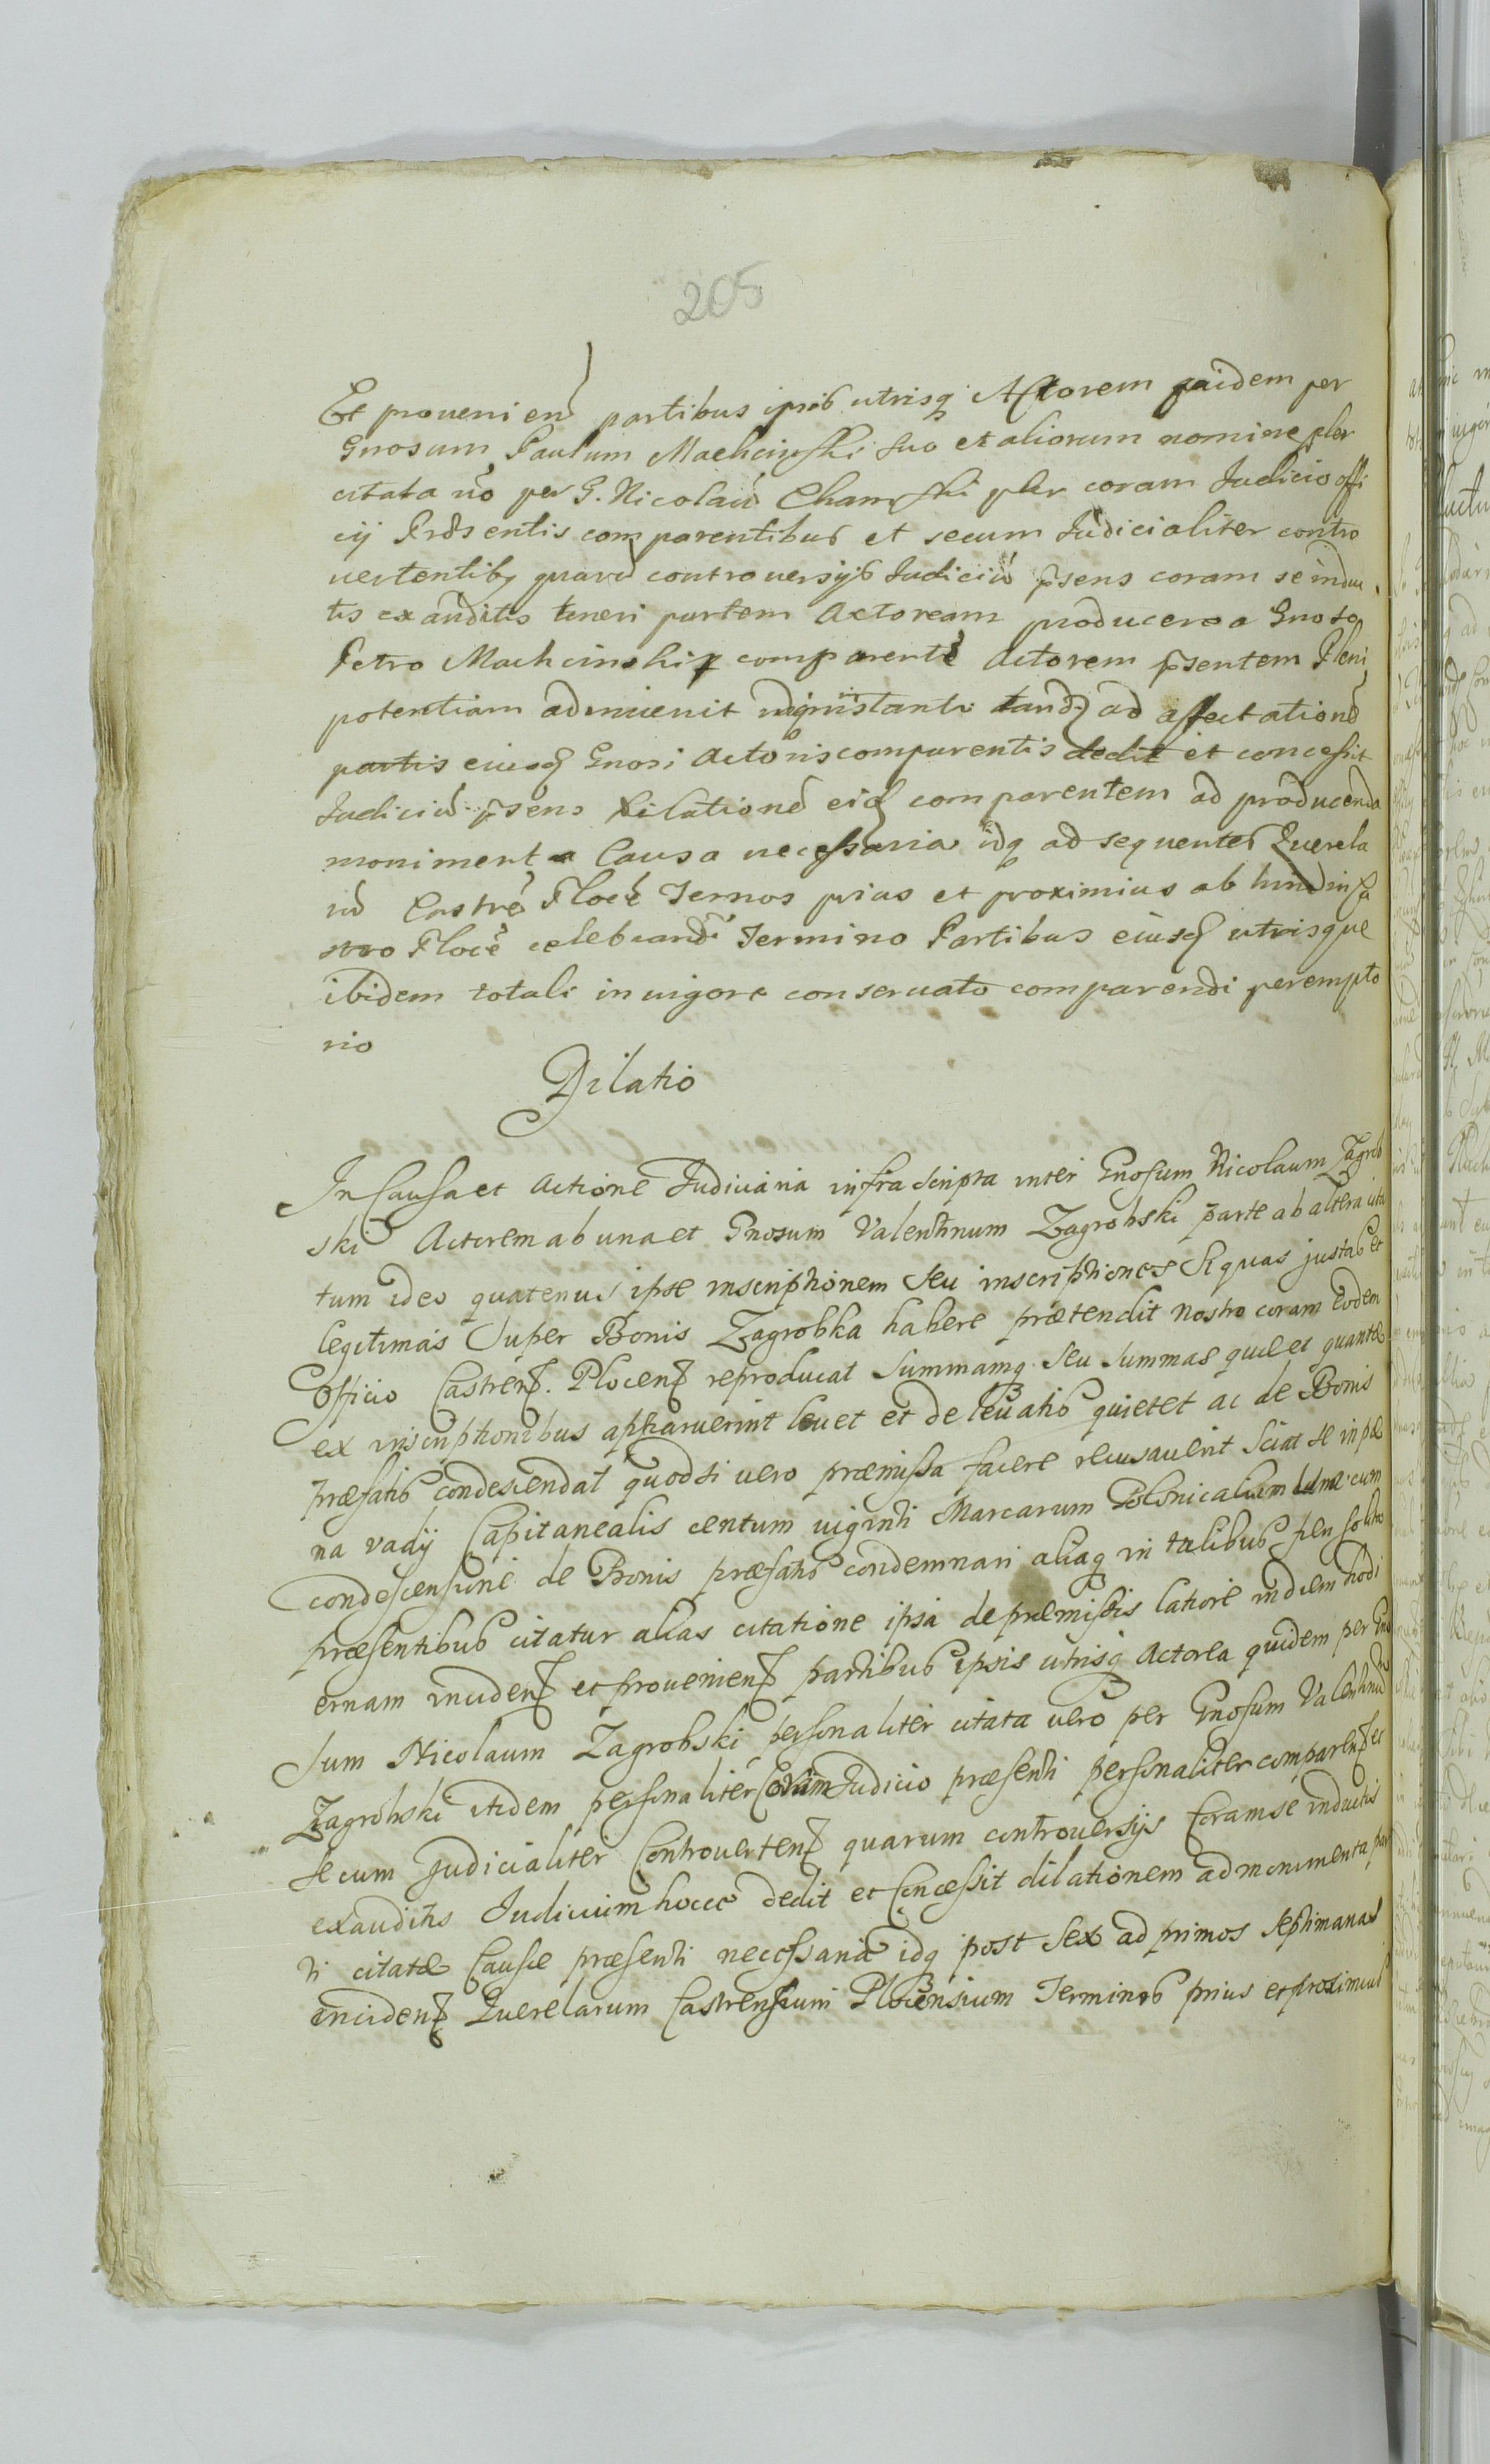 205
Et provenien partibus ipsis utrisq Actorem quidem per
Gnosum Paulum Machcinski suo et aliorum nomine pler
citata vo per G. Nicolau Chamski pler coram Judicio offi
cij Prdsentis comparentibus et secum Judicialiter contro
vertentibq quaru controversijs Judiciu psens coram se induc
tis exauditis teneri partem Actoream producere a Gnoso
Petro Machcinski comparente Actorem psentem Pleni
potentiam adinvenit tandq ad affectatione
partis eiusq Gnosi Actoris comparentis dedit et concessit
Judiciu psens Dilatione eidq comparentem ad producenda
monimenta Causa necessaria idq ad sequentes Querela
ru Castre Ploce Ternos prius et proximius ab hinc in Ca
stro Ploce celebrandi Termino Partibus eiusq utrisque
ibidem totali in vigore conservato comparendi perempto
rio
Dilatio
In Causa et Actione Judiciaria infrascripta inter Gnosum Nicolaum Zagrob
ski Actorem ab una et Gnosum Valentinum Zagrobski parte ab altera cita
tum ideo quatenus ipse inscriptionem seu inscriptiones si quas justas et
legitimas super Bonis Zagrobka habere prætendit nostro coram eodem
Officio Castren. Plocen reproducat summamq seu summas quæ et quantæ
ex inscriptionibus apparuerint levet et de levatis quietet ac de Bonis
præfatis condescendat quod si vero præmissa facere recusaverit sciat se in pæ
na vadij Capitanealis centum viginti Marcarum Polonicalium una cum
condescensione de Bonis præfatis condemnari aliaq in talibus pen solitis
præsentibus citatur alias citatione ipsa de præmissis latiore in diem hodi
ernam inciden et provenien partibus ipsis utrisq Actorea quidem per Gno
sum Nicolaum Zagrobski personaliter citata vero per Gnosum Valentinu
Zagrobski itidem personaliter Coram Judicio præsenti personaliter comparen et
secum Judicialiter Controverten quarum controversijs Coram se inductis
exauditis Judicium hocce dedit et Concessit dilationem ad monumenta par
ti citatæ Causæ præsenti necessaria idq post sex ad primos septimanas
inciden Querelarum Castrensium Plocensium Terminos prius et proximius